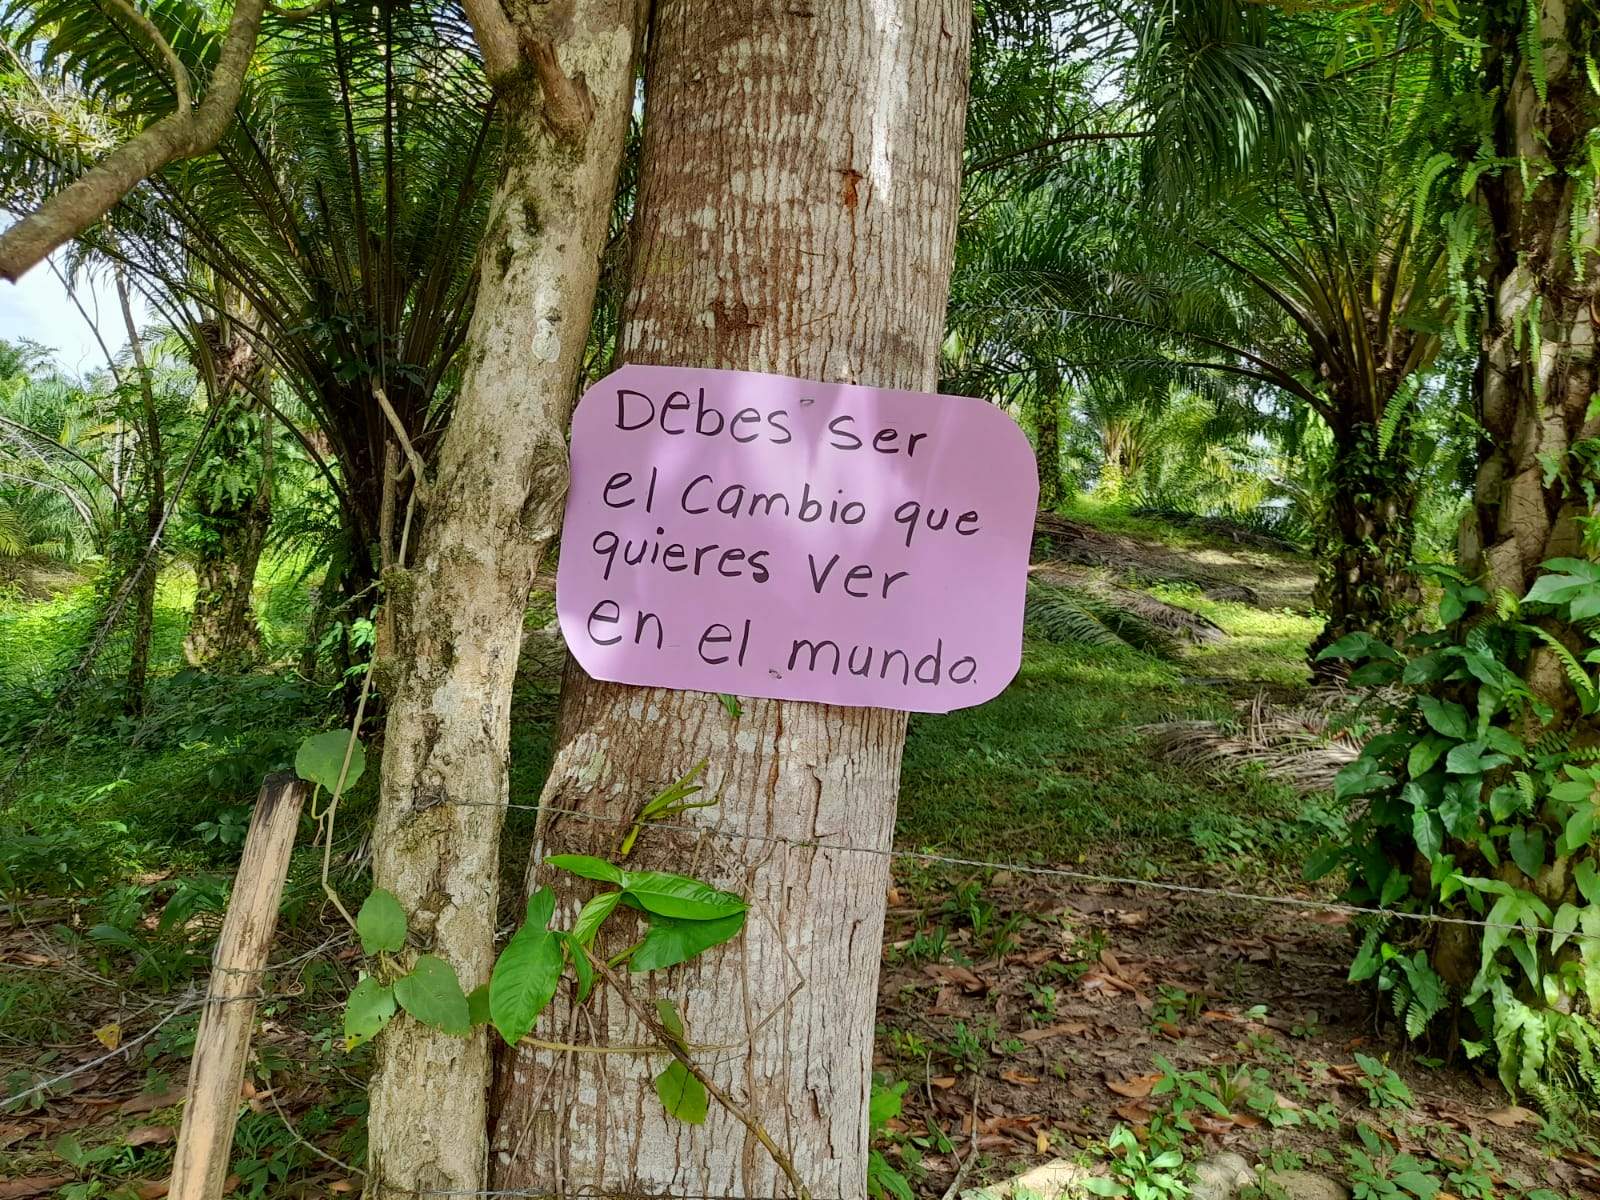 Debes ser
el cambio que
quieres ver
en el mundo.